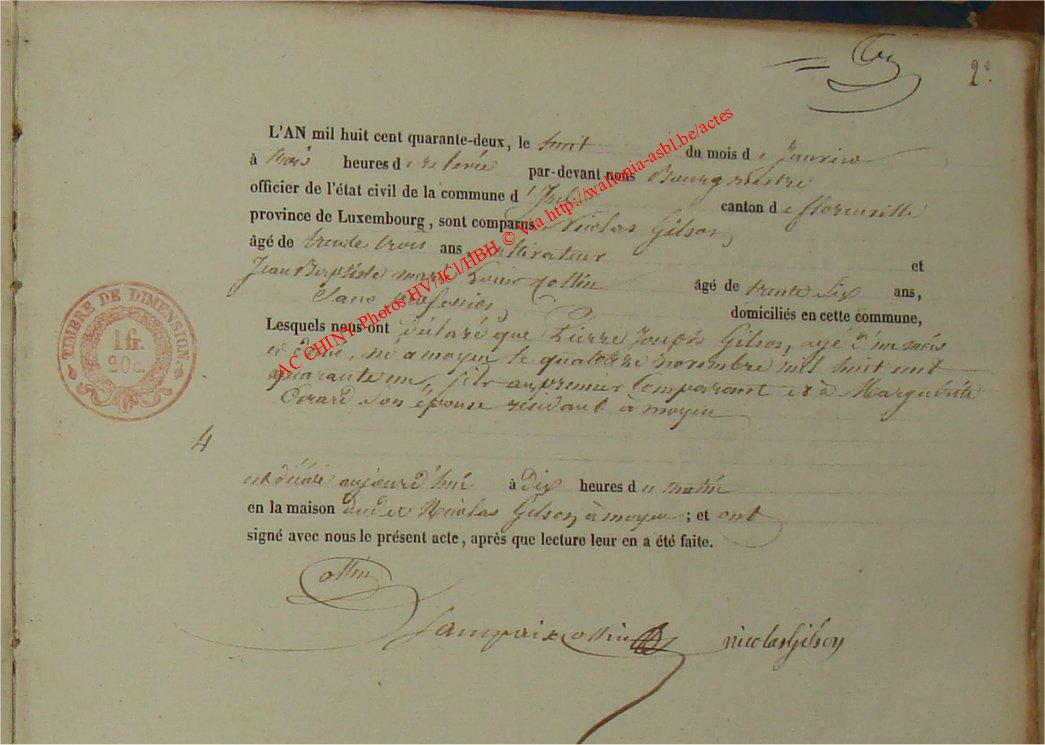 2e
L'AN mil huit cent quarante-deux, le huit du mois de Janvier
à trois heures de relevée par-devant nous Bourgmestre
officier de l'état civil de la commune d'Izel canton de florenville
province de Luxembourg, sont comparus Nicolas Gilson
âgé de trente trois ans cultivateur et
Jean Baptiste Louis ottin âgé de trente six ans,
Sans profession domiciliés en cette commune,
Lesquels nous ont déclaré que Pierre Joseph Gilson, agé d'un mois
né a moyen le quatorze novembre mil huit cent
quarante un, fils au premier comparant et à Marguerite
son épouse résidant à moyen
4
est décédé aujourd'hui à dix heures du matin
en la maison dudit Nicolas Gilson à moyen ; et ont
signé avec nous le présent acte, après que lecture leur en a été faite.
ottin
Lampaix ottin nicolas Gilson
TIMBRE DE DIMENSION
16.
20c.
AC CHINY Photos HV/JCl/HBH © Via http://wallonia-asbl.be/actes